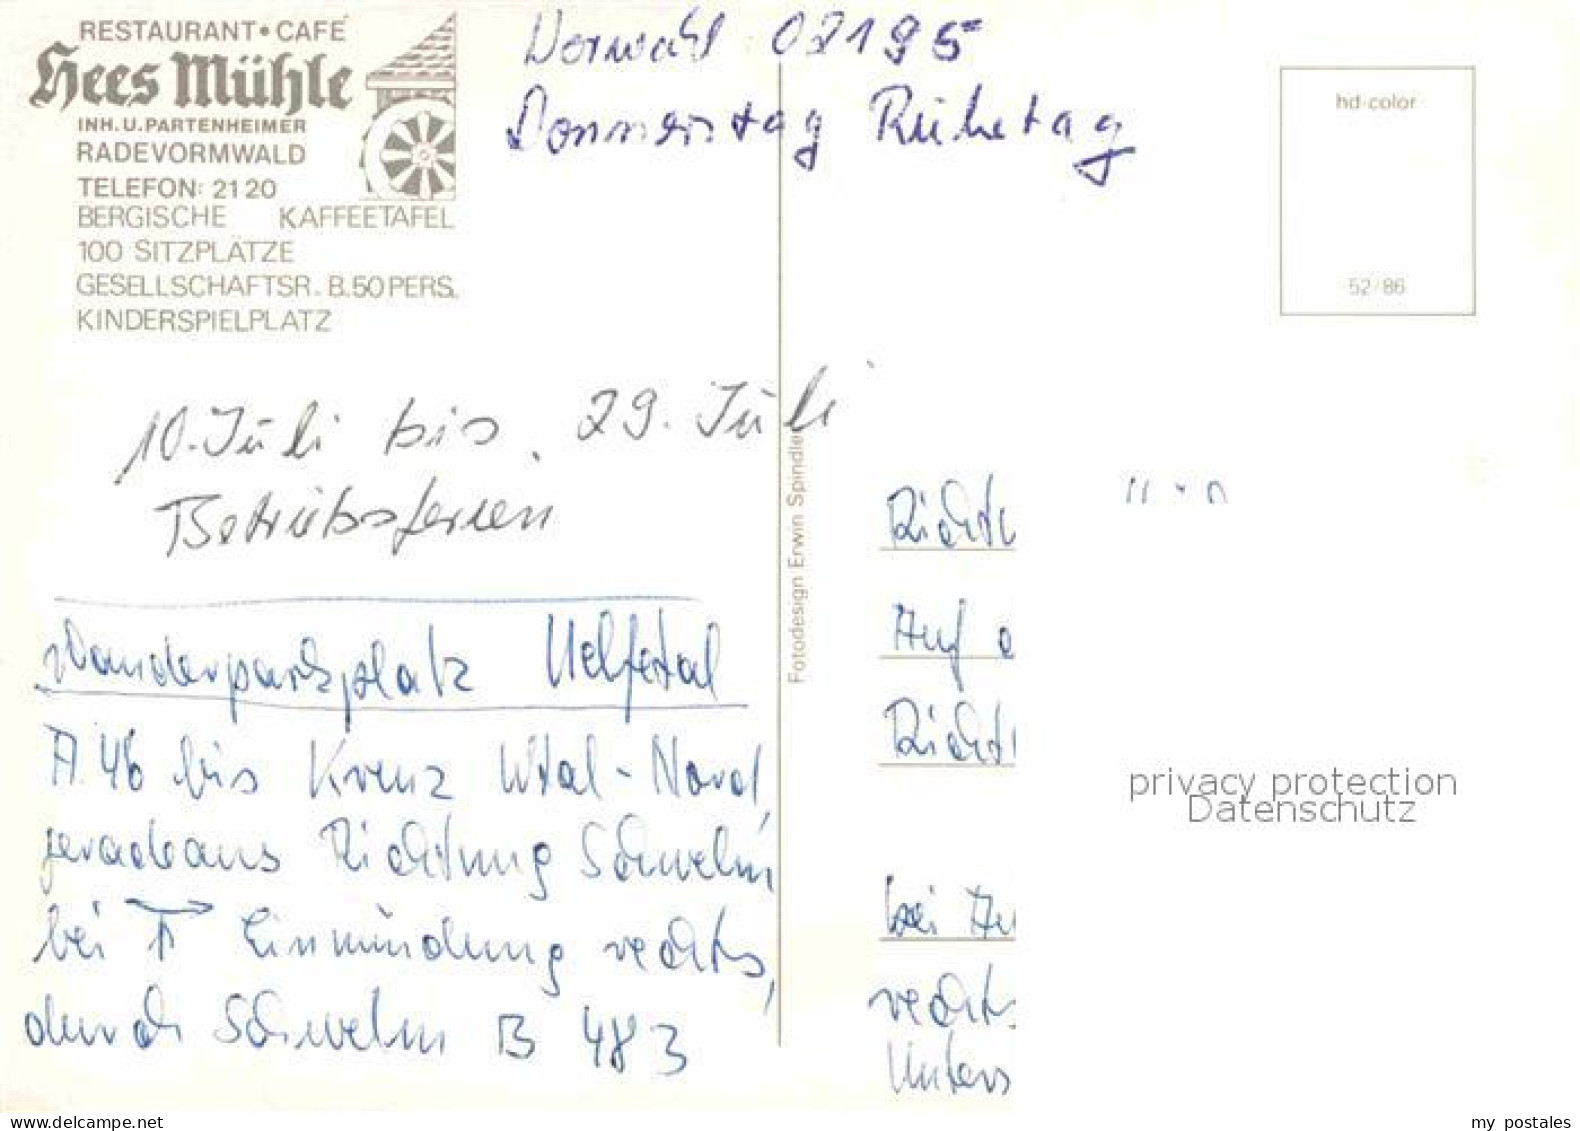 RESTAURANT • CAFÉ
Hees Mühle
INH. U. PARTENHEIMER
RADEVORMWALD
TELEFON: 21 20
BERGISCHE KAFFEETAFEL
100 SITZPLÄTZE
GESELLSCHAFTSR. B. 50 PERS.
KINDERSPIELPLATZ
Vorwahl 02195
Donnerstag Ruhetag
hd-color
52/86
10. Juli bis 29. Juli
Betriebsferien
Wanderparkplatz Uelfetal
A 46 bis Kreuz Wtal-Nord,
geradeaus Richtung Schwelm
bei Einmündung rechts,
durch Schwelm B 483
Fotodesign Erwin Spindler
Richt
Auf
Richt
bei
rechts
Unters
privacy protection
Datenschutz
www.delcampe.net
my postales